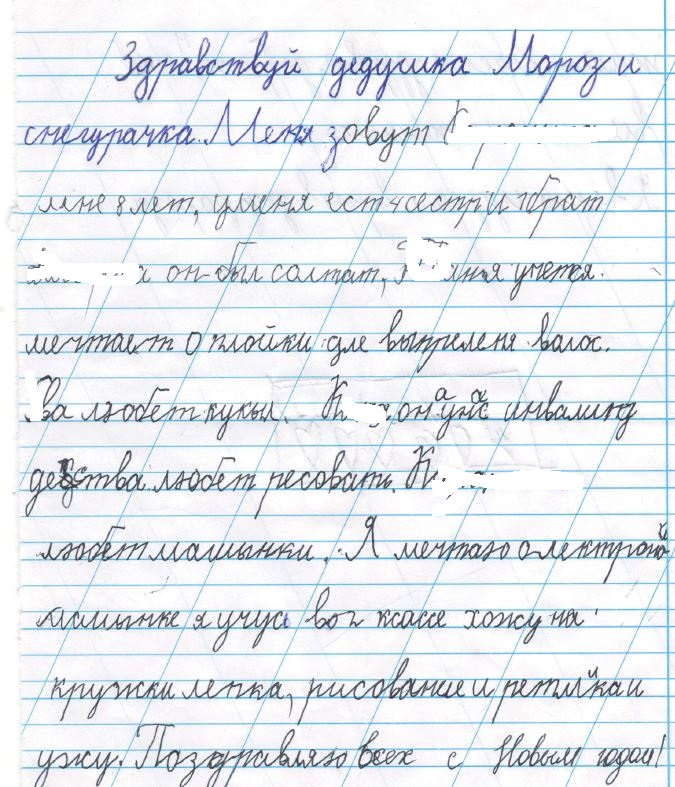 Здравствуй дедушка Мороз и
снегурачка. Меня зовут
мне 8 лет, уменя ест 4сестри 1брат
а он был солтат, яня учется.
мечтает о плойки дле выпреленя валос.
ва любет кукыл. К она у нас инвалинд
детства любет ресовать. К
любет машынки. Я мечтаю олектроной
машынке я учус во2 класе хожу на
кружки лепка, рисование и
ужу. Поздравляю всех с Новым годом!